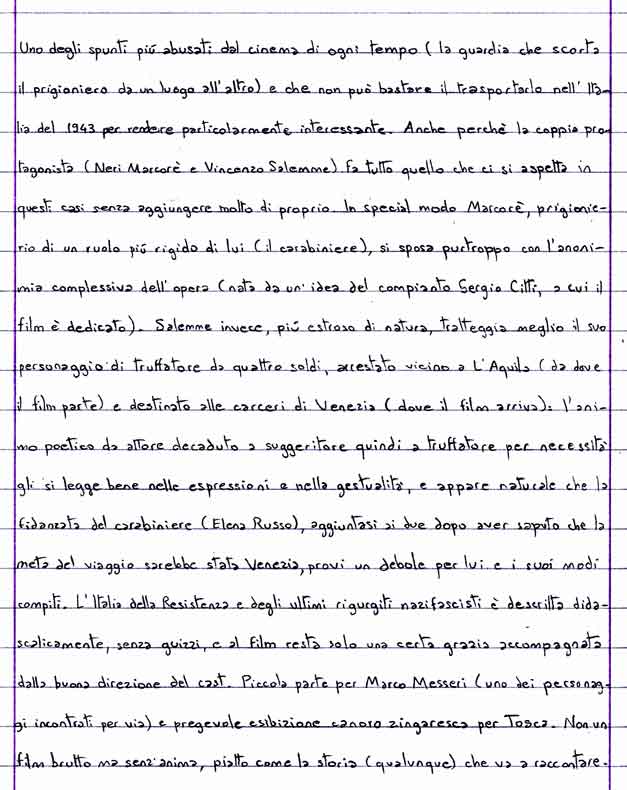 Uno degli spunti più abusati dal cinema di ogni tempo (la guardia che scorta
il prigioniero da un luogo all'altro) e che non può bastare il trasportarlo nell'Ita-
lia del 1943 per rendere particolarmente interessante. Anche perchè la coppia pro-
tagonista (Neri Marcorè e Vincenzo Salemme) fa tutto quello che ci si aspetta in
questi casi senza aggiungere molto di proprio. In special modo Marcorè, prigionie-
rio di un ruolo più rigido di lui (il carabiniere), si sposa purtroppo con l'anoni-
mia complessiva dell'opera (nata da un'idea del compianto Sergio Citti, a cui il
film è dedicato). Salemme invece, più estroso di natura, tratteggia meglio il suo
personaggio di truffatore da quattro soldi, arrestato vicino a L'Aquila (da dove
il film parte) e destinato alle carceri di Venezia (dove il film arriva): l'ani-
mo poetico da attore decaduto a suggeritore quindi a truffatore per necessità
gli si legge bene nelle espressioni e nella gestualità, e appare naturale che la
fidanzata del carabiniere (Elena Russo), aggiuntasi ai due dopo aver saputo che la
meta del viaggio sarebbe stata Venezia, provi un debole per lui e i suoi modi
compiti. L'Italia della Resistenza e degli ultimi rigurgiti nazifascisti è descritta dida-
scalicamente, senza guizzi, e al film resta solo una certa grazia accompagnata
dalla buona direzione del cast. Piccola parte per Marco Messeri (uno dei personag-
gi incontrati per via) e pregevole esibizione canoro zingaresca per Tosca. Non un
film brutto ma senz'anima, piatto come la storia (qualunque) che va a raccontare.